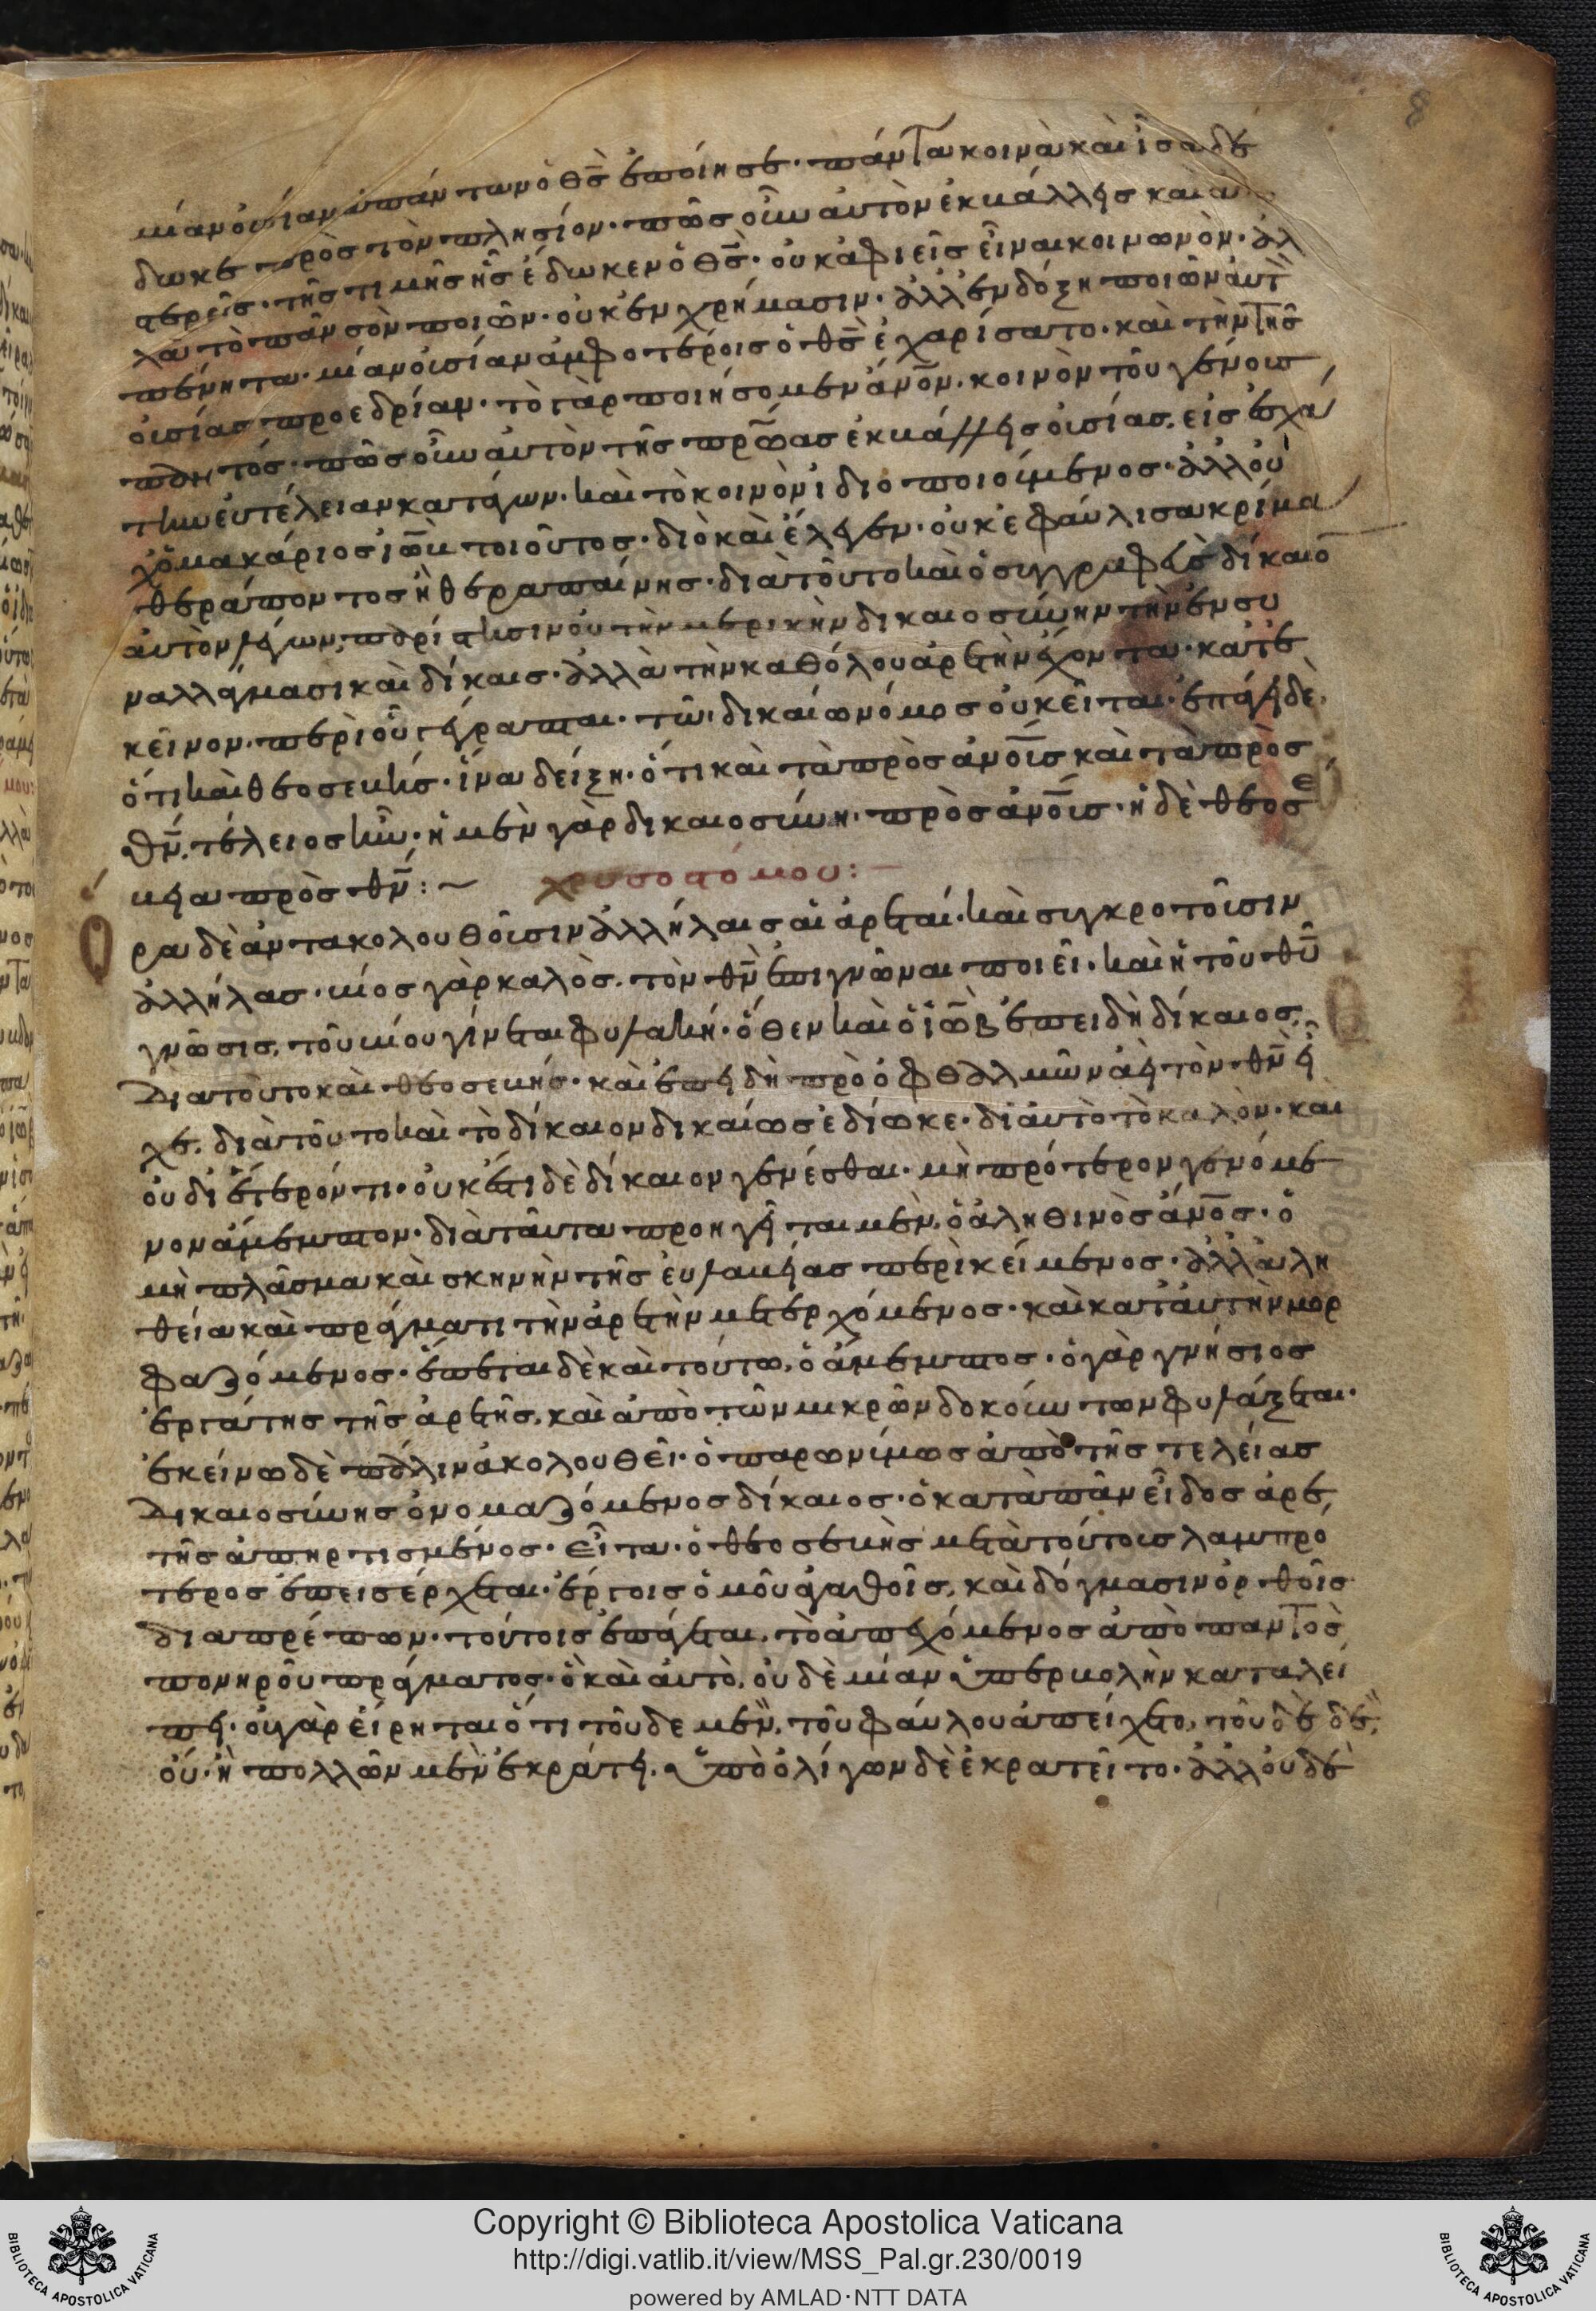 8
μίαν οὐσίαν ἁπάντων ὁ θς̅ ἐποίησε· πάντα κοινὰ καὶ ἴσα δέ
δωκε πρὸς τὸν πλησίον· πῶς οὖν αὐτὸν ἐκβάλλεις καὶ ἀπο
στερεῖς· τῆς τιμῆς ἧς ἔδωκεν ὁ θς̅· οὐκ ἀφιεῖς εἶναι κοινωνὸν· ἀλ
λὰ τὸ πᾶν σὸν ποιῶν· οὐκ ἐν χρήμασιν· ἀλλ' ἐν δόξη ποιῶν αὐτ
πένητα· μίαν οὐσίαν ἀμφοτέροις ὁ θς̅ ἐχαρίσατο· καὶ τὴν τῆς
οὐσίας προεδρίαν· τὸ γὰρ ποιήσομεν ἄνο̅ν· κοινὸν τοῦ γένους
παντός· πῶς οὖν αὐτὸν τῆς πρώας ἐκβάλλεις οὐσίας, εἰς ἐσχά
την εὐτέλειαν κατάγων· καὶ τὸ κοινὸν ἰδιοποιούμενος· ἀλλ' οὐ
χ' ὁ μακάριος ἰὼβ τοιοῦτος· διὸ καὶ ἔλεγεν· οὐκ ἐφαύλισα κρίμα
θεράποντος ἢ θεραπαίνης· διὰ τοῦτο καὶ ὁ συγγραφεὺς δίκαιο̅
αὐτὸν λέγων, παρίστησιν οὐ τὴν μερικὴν δικαιοσύνην τὴν ἐν συ
ναλλάγμασι καὶ δίκαις· ἀλλὰ τὴν καθόλου ἀρετὴν ἔχοντα· κατ' ἐ
κεῖνον· περὶ οὗ γέγραπται· τῶι δικαίω νόμος οὐ κεῖται· ἐπάγει δὲ,
ὅτι καὶ θεοσεβής· ἵνα δείξη· ὅτι καὶ τὰ πρὸς ἀνο̅υς καὶ τὰ πρὸς
θν̅, τέλειος ἦν· ἡ μὲν γὰρ δικαιοσύνη, πρὸς ἀνο̅υς· ἡ δὲ θεοσέ
βεια πρὸς θν̅: ~ χρυσοστόμου: –
Ορα δὲ ἀντακολουθοῦσιν ἀλλήλαις αἱ ἀρεταί· καὶ συγκροτοῦσιν
ἀλλήλας· βίος γὰρ καλὸς, τὸν θν̅ ἐπιγνῶναι ποιεῖ· καὶ ἡ τοῦ θυ̅
γνῶσις, τοῦ βίου γίνεται φυλακή· ὅθεν καὶ ὁ ἰὼβ ἐπειδὴ δίκαιος,
διὰ τοῦτο καὶ θεοσεβής· καὶ ἐπειδὴ πρὸ ὀφθαλμῶν ἀεὶ τὸν θν̅ εἶ
χε, διὰ τοῦτο καὶ τὸ δίκαιον δικαίως ἐδίωκε· δι' αὐτὸ τὸ καλὸν· καὶ
οὐ δι' ἕτερόν τι· οὐκ ἔστι δὲ δίκαιον γενέσθαι· μὴ πρότερον γενόμε
νον ἄμεμπτον· διὰ ταῦτα προηγεῖται μὲν, ὁ ἀληθινὸς ἄνο̅ς· ὁ
μὴ πλάσμα καὶ σκηνὴν τῆς εὐλαβείας περικείμενος· ἀλλ' ἀλη
θεία καὶ πράγματι τὴν ἀρετὴν μετερχόμενος· καὶ κατ' αὐτὴν μορ
φαζόμενος· ἕπεται δὲ καὶ τούτω, ὁ ἄμεμπτος· ὁ γὰρ γνήσιος
ἐργάτης τῆς ἀρετῆς, καὶ ἀπὸ τῶν μικρῶν δοκούντων φυλάξεται·
ἐκείνω δὲ πάλιν ἀκολουθεῖ· ὁ παρωνύμως ἀπὸ τῆς τελείας
δικαιοσύνης ὀνομαζόμενος δίκαιος· ὁ κατὰ πᾶν εἶδος ἀρε
τῆς ἀπηρτισμένος· εἶτα· ὁ θεοσεβὴς μετὰ τούτοις λαμπρό
τερος ἐπεισέρχεται· ἔργοις ὁμοῦ ἀγαθοῖς, καὶ δόγμασιν ὀρθοῖς
διαπρέπων· τούτοις ἐπάγεται, τὸ ἀπεχόμενος ἀπὸ παντὸς
πονηροῦ πράγματος· ὃ καὶ αὐτὸ, οὐδὲ μίαν ὑπερβολὴν καταλεί
πει· οὐ γὰρ εἴρηται ὅτι τοῦδε μὲν, τοῦ φαύλου ἀπείχετο, τοῦδε δὲ,
οὔ· ἢ πολλῶν μὲν ἐκράτει. ὑπὸ ὀλίγων δὲ ἐκρατεῖτο· ἀλλ' οὐδὲ
Copyright © Biblioteca Apostolica Vaticana
http://digi.vatlib.it/view/MSS_Pal.gr.230/0019
powered by AMLAD·NTT DATA
BIBLIOTECA APOSTOLICA VATICANA
BIBLIOTECA APOSTOLICA VATICANA